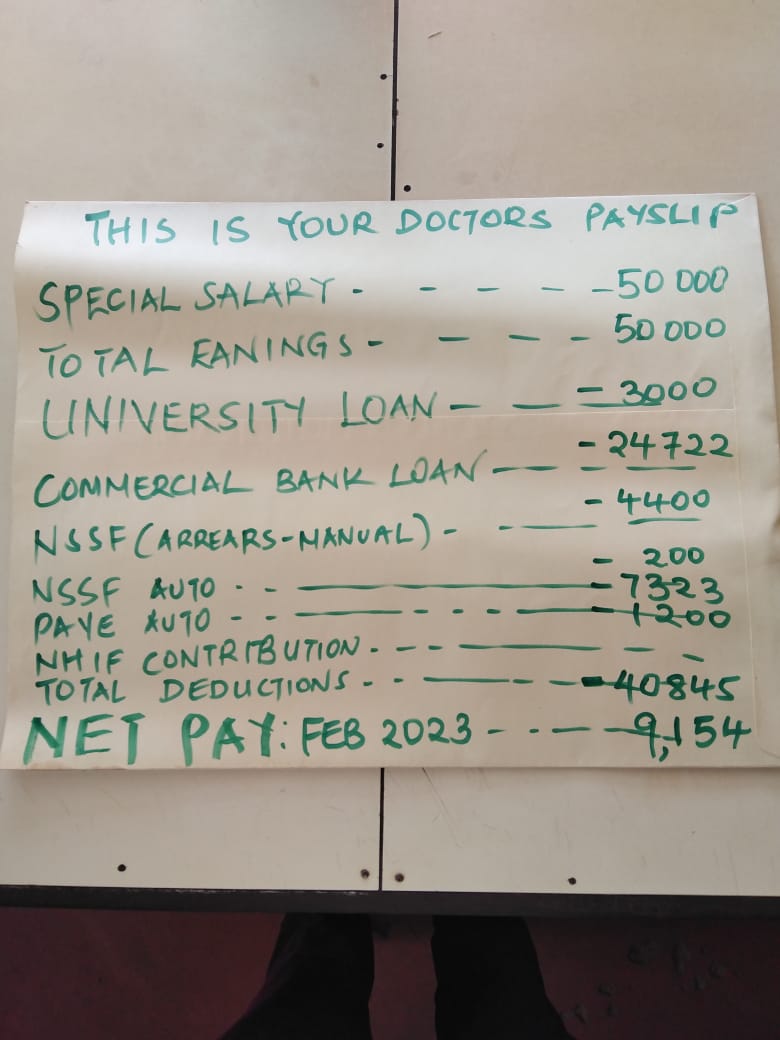 THIS IS YOUR DOCTORS PAYSLIP
SPECIAL SALARY - - - - - 50 000
TOTAL EANINGS - - - - - 50 000
UNIVERSITY LOAN - - - - 3000
COMMERCIAL BANK LOAN - - - - 24722
NSSF (ARREARS-MANUAL) - - - 4400
NSSF AUTO - - - - 200
PAYE AUTO - - - - 7323
NHIF CONTRIBUTION - - - - 1200
TOTAL DEDUCTIONS - - - - - 40845
NET PAY: FEB 2023 - - - - 9,154